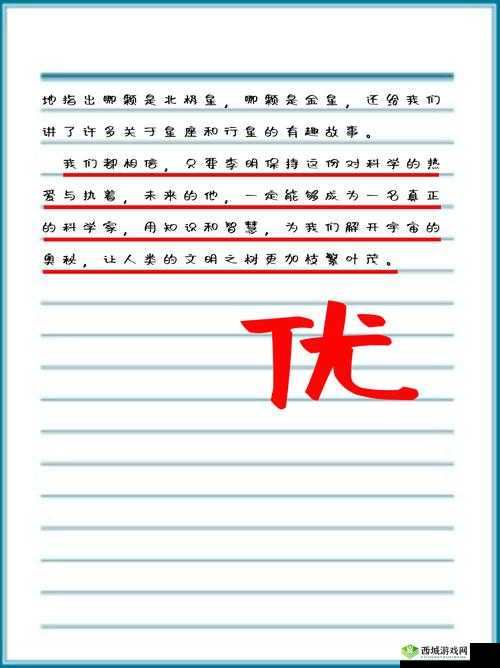 地指出哪颗是北极星，哪颗是金星，还给我们
讲了许多关于星座和行星的有趣故事。
我们都相信，只要李明保持这份对科学的热
爱与执着，未来的他，一定能够成为一名真正
的科学家，用知识和智慧，为我们解开宇宙的
奥秘，让人类的文明之树更加枝繁叶茂。
优
西城游戏网